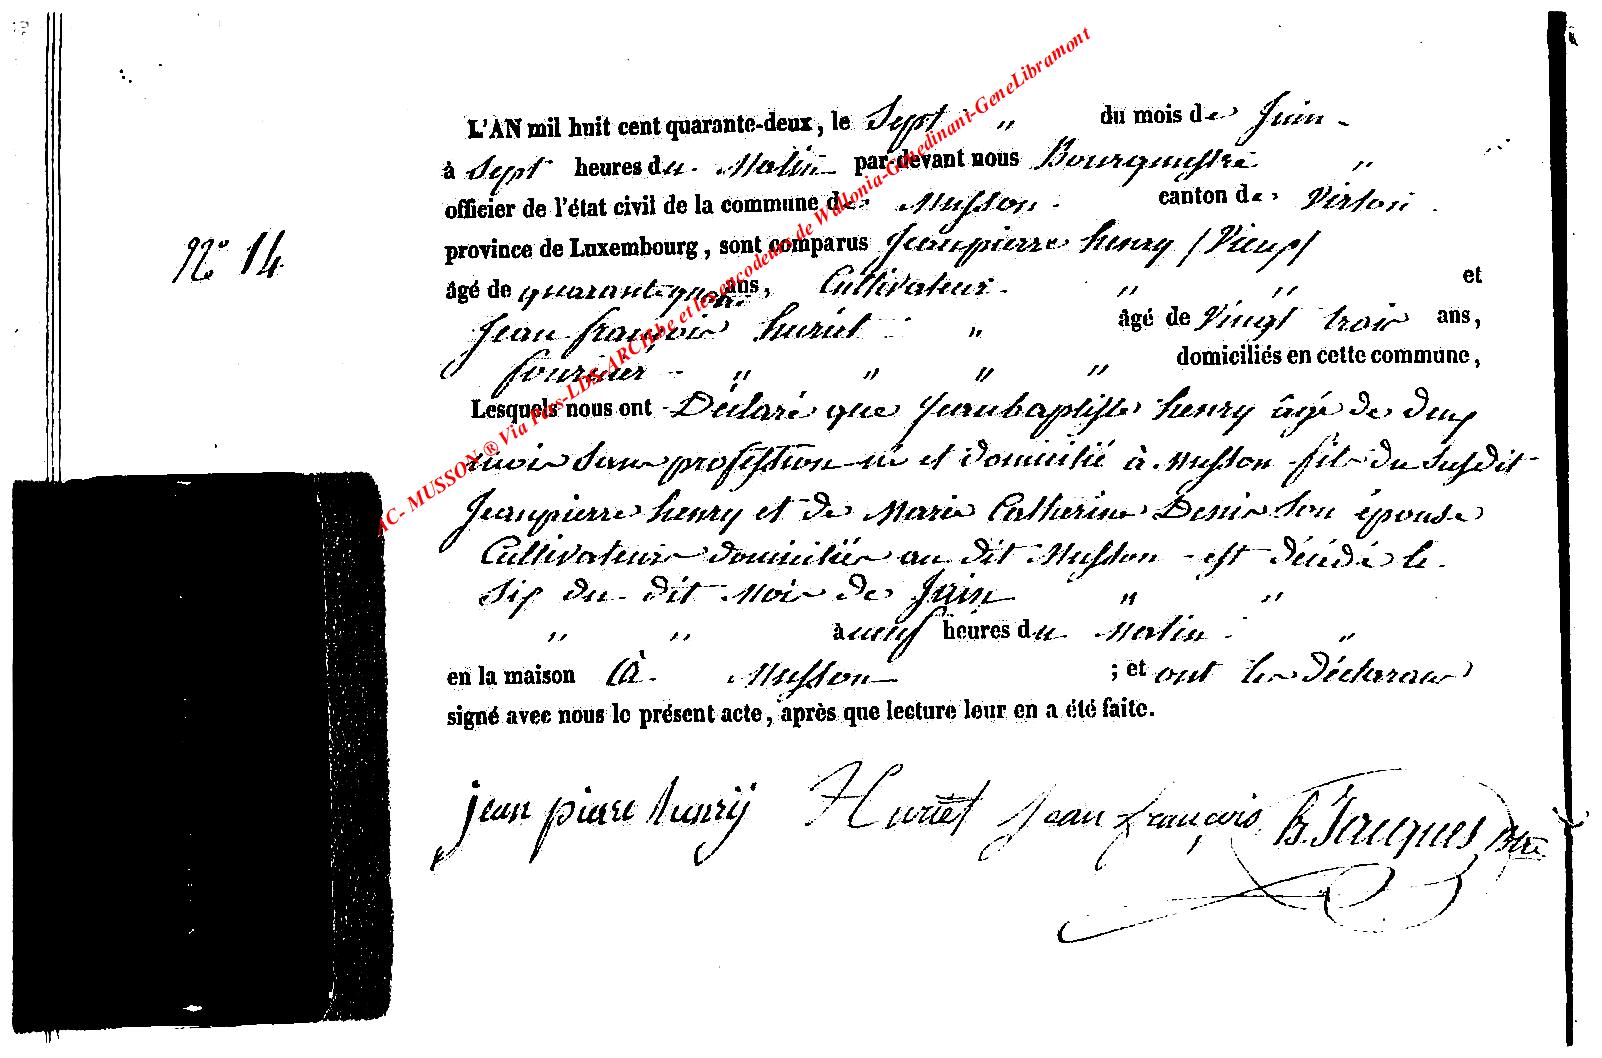 L'AN mil huit cent quarante-deux, le Sept " du mois de Juin
à Sept heures du Matin par-devant nous Bourgmestre "
officier de l'état civil de la commune de Musson canton de Virton
N° 14
province de Luxembourg, sont comparus Jeanpierre henry / Vieux /
âgé de ans, Cultivateur " " et
Jean françois huriet " âgé de Vingt trois ans,
" " " " domiciliés en cette commune,
Lesquels nous ont Déclaré que Jeanbaptiste henry âgé de deux
mois Sans profession né et domicilié à Musson fils du Susdit
Jeanpierre henry et de Marie Catherine Denis Son épouse
Cultivateurs domiciliés au dit Musson est décédé le
Six du dit Mois de Juin " "
" " à neuf heures du Matin "
en la maison à Musson ; et ont les Déclarans
signé avec nous le présent acte, après que lecture leur en a été faite.
jean pierre henrÿ Huriet Jean françois B. Jacques Btre
AC- MUSSON ® Via Pars-LDS-ARCH.be et les encodeurs de Wallonia-Genedinant-GeneLibramont